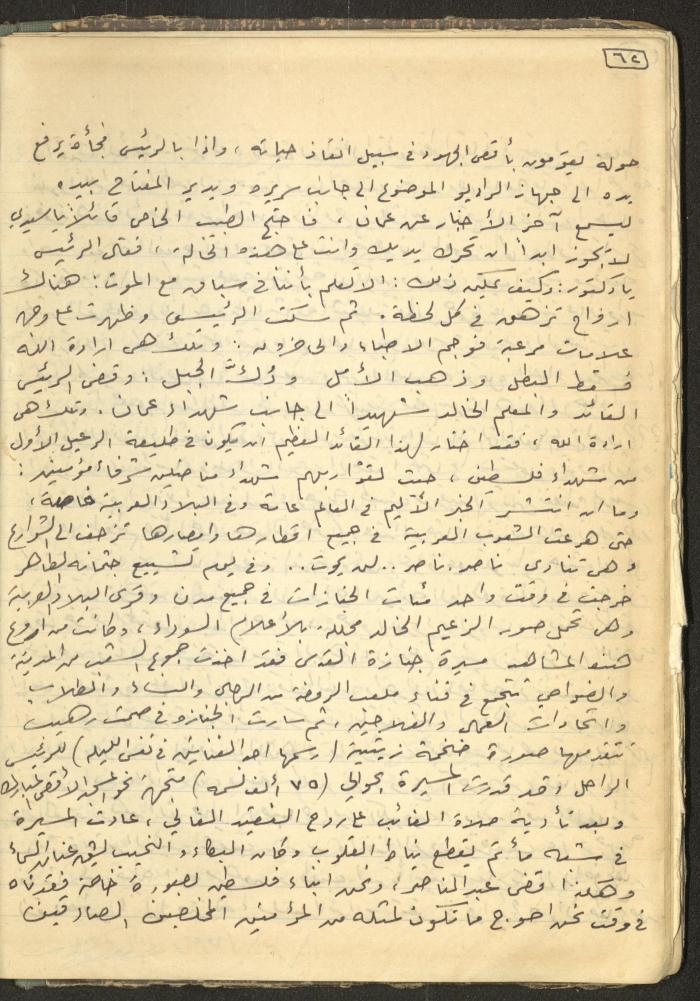 ٦٢
حوله يقومون بأقصى الجهود في سبيل انقاذ حياته ، واذا بالرئيس فجأة يرفع
يده الى جهاز الراديو الموضوع الى جانب سريره ويدير المفتاح بيده
ليسمع آخر الأخبار عن عمان ، فاحتج الطبيب الخاص قائلا يا سيدي
لا يجوز ابداً ان تحرك يديك وانت على هذه الحالة ، فقال الرئيس
يا دكتور : وكيف يمكن ذلك : الا تعلم بأننا في سباق مع الموت : هناك
ارواح تزهق في كل لحظة . ثم سكت الرئيس وظهرت على وجهه
علامات مرعبة فوجم الاطباء والحاضرون : وتلك هي ارادة الله
فسقط البطل وذهب الأمل ودُكَّ الجبل : وقضى الرئيس
القائد والمعلم الخالد شهيداً الى جانب شهداء عمان . وتلك هي
ارادة الله ، فقد اختار لهذا القائد العظيم ان يكون في طليعة الرعيل الأول
من شهداء فلسطين ، حيث لقوا ربهم شهداء مناضلين شرفاء مؤمنين :
وما ان انتشر الخبر الأليم في العالم عامة وفي البلاد العربية خاصة ،
حتى هرعت الشعوب العربية في جميع اقطارها وامصارها تزحف الى الشوارع
وهي تنادي ناصر . ناصر .. لن يموت .. وفي يوم تشييع جثمانه الطاهر
خرجت في وقت واحد مئات الجنازات في جميع مدن وقرى البلاد العربية
وهي تحمل صور الزعيم الخالد مجللة بالأعلام السوداء ، وكانت من اروع
هذه المشاهد مسيرة جنازة القدس فقد اخذت جموع الشعب من المدينة
والضواحي تتجمع في فناء ملعب الروضة من الرجال والنساء والطلاب
واتحادات العمال والفلاحين ، ثم سارت الجنازة في صمت رهيب
تتقدمها صورة ضخمة زيتية ( رسمها احد الفنانين في نفس الليلة ) للرئيس
الراحل وقد قدرت المسيرة بحوالي ( ٧٥ ألف نسمه ) متجهة نحو المسجد الأقصى المبارك
وبعد تأدية صلاة الغائب على روح الفقيد الغالي ، عادت المسيرة
في شبه مأتم يقطع نياط القلوب وكان البكاء والنحيب يشق عنان السماء
وهكذا قضى عبد الناصر ، ونحن ابناء فلسطين بصورة خاصة فقدناه
في وقت نحن احوج ما نكون لمثله من المؤمنين المخلصين الصادقين